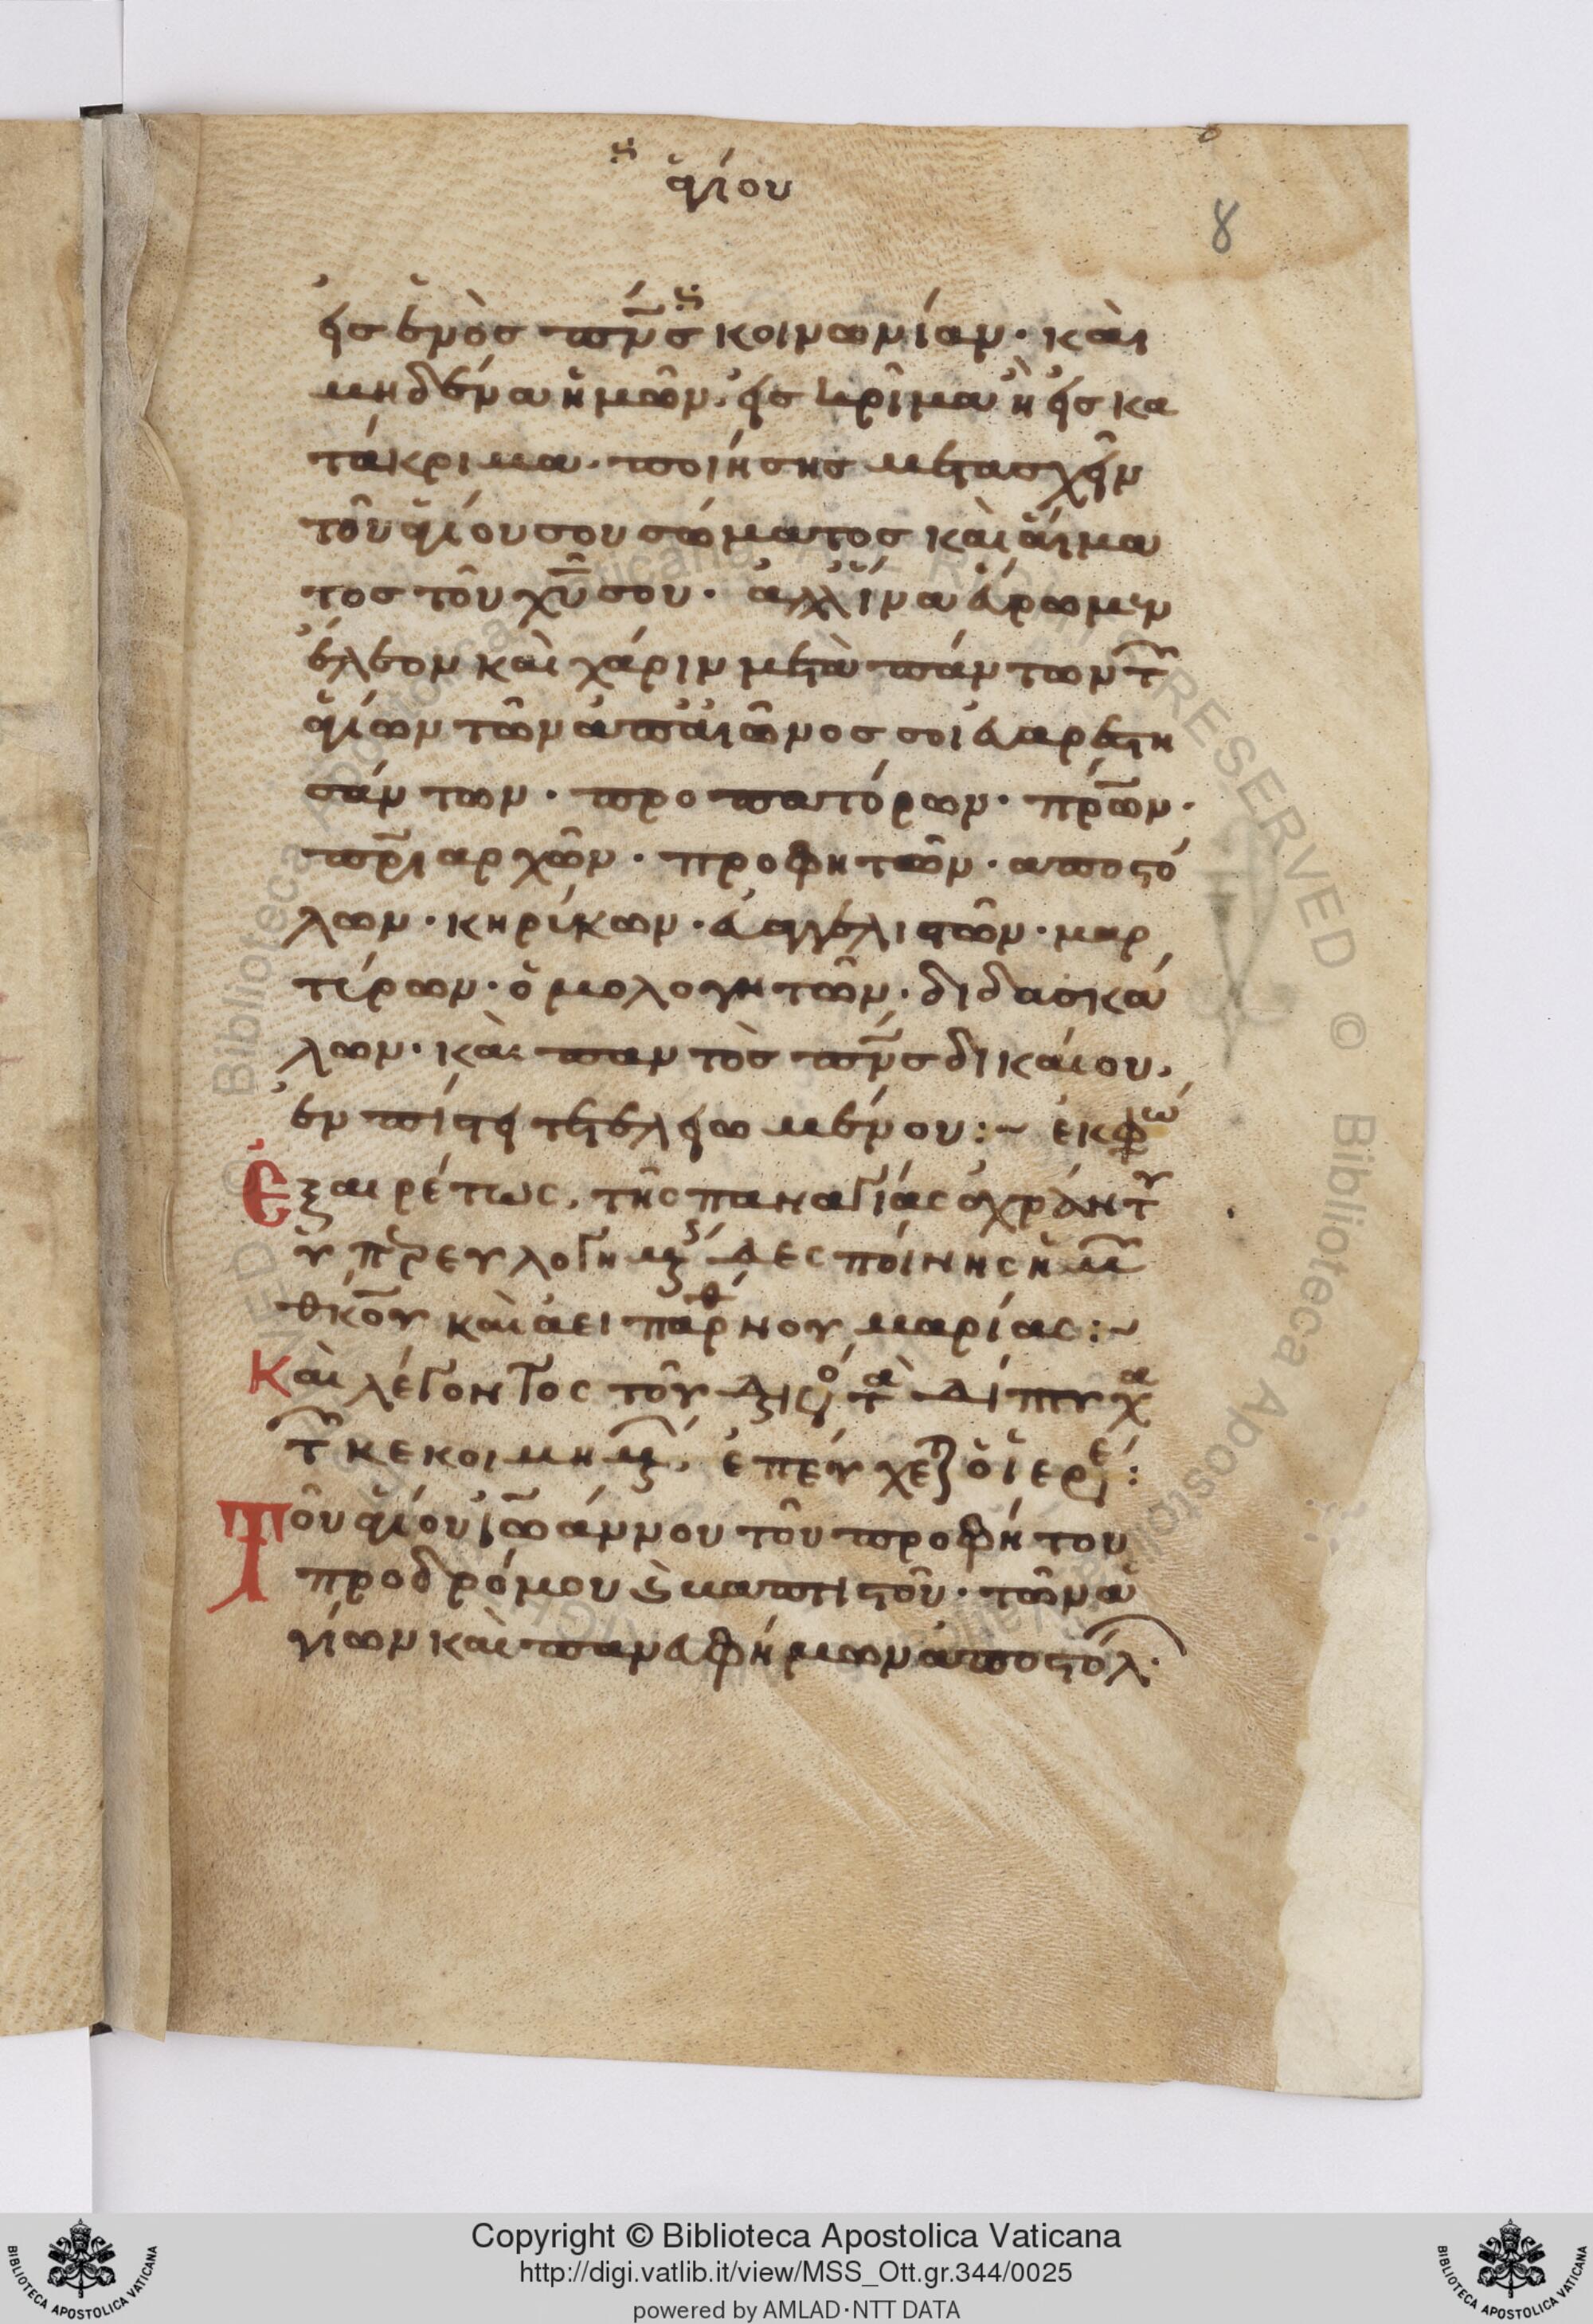 ἁγίου
8
εἰς ἑνὸς πν̅ς κοινωνίαν· καὶ
μηδένα ἡμῶν, εἰς κρῖμα ἢ εἰς κα
τάκριμα· ποιήσης μετασχεῖν
τοῦ ἁγίου σου σώματος καὶ αἵμα
τος τοῦ χ̅υ σου· ἀλλ' ἵνα εὕρωμεν
ἔλεον καὶ χάριν μετὰ πάντων τ
ἁγίων τῶν ἀπ' αἰῶνος σοι εὐαρεστη
σάντων· προπατόρων· πρ̅ων·
πρ̅ιαρχῶν· προφητῶν· αποστό
λων· κηρίκων· εὐαγγελιστῶν· μαρ
τίρων· ὁμολογητῶν· διδασκά
λων· καὶ παντὸς πν̅ς δικαίου,
ἐν πίστει τετελειωμένου:~ ἐκφω
Ἐξαιρέτως, τῆς παναγίας ἀχράντου
ὑπ̅ρευλογημ δεσποίνης ἡμ
θ̅κου καὶ ἀειπαρθνου μαρίας:~
Καὶ λέγοντος τοῦ διακο τὰ δίπτυχα
τ κεκοιμημ, ἐπεύχεται ὁ ἱερε:
Τοῦ ἁγίου ἰω̅άννου τοῦ προφήτου
προδρόμου καὶ βαπτιστοῦ· τῶν ἁ
γίων καὶ πανευφήμων ἀποστόλ·
Copyright © Biblioteca Apostolica Vaticana
http://digi.vatlib.it/view/MSS_Ott.gr.344/0025
powered by AMLAD·NTT DATA